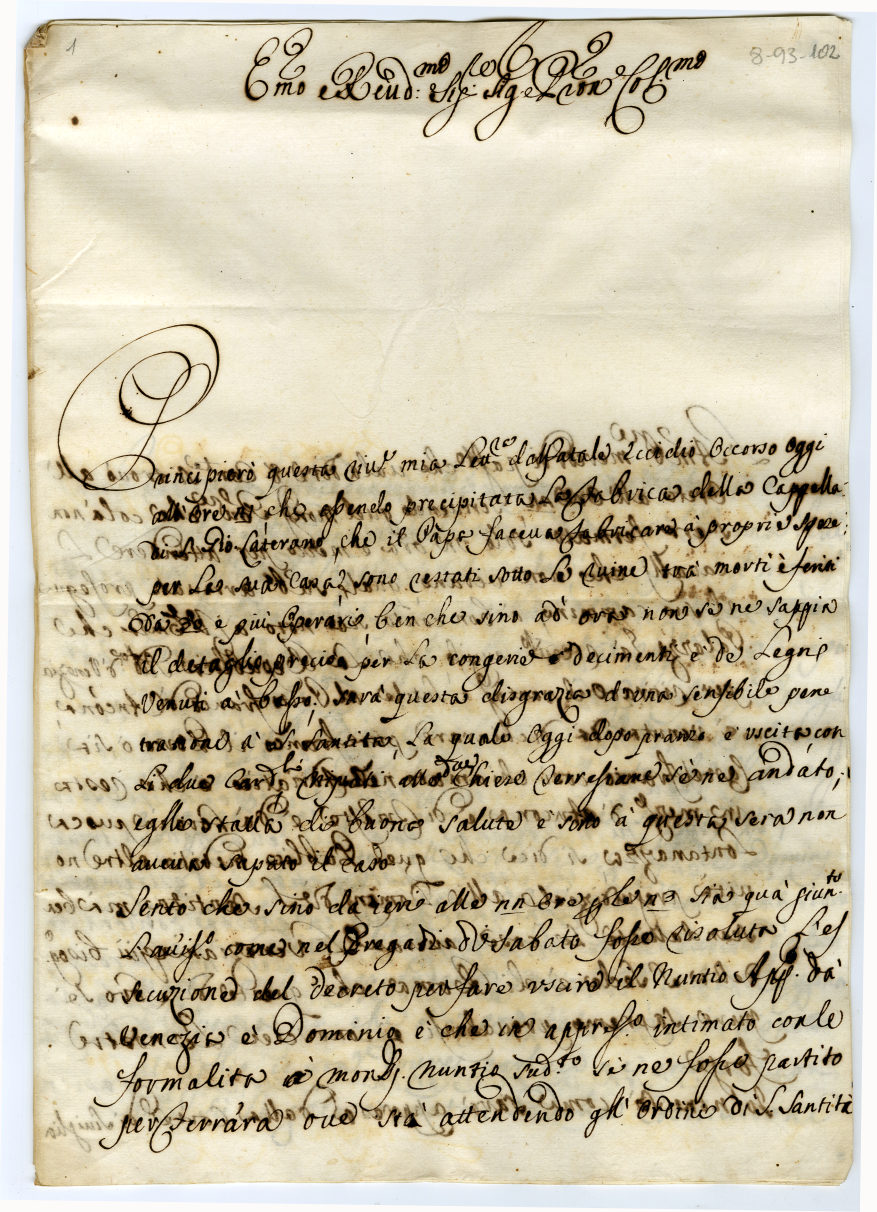 1
8-93-102
Em.o e Reud.mo Sig.re Sig.re e Pron Col.mo
Principierò questa riu.a mia Let.re dal fatale Eccidio occorso oggi
alle ore che essendo precipitata La fabrica della Cappella
di S. Gio: Laterano, che il Papa faceua fabricare à proprie spese
per La sua Casa, sono restati sotto Le ruine trà morti è feriti
e più Operarij, ben che sino ad ora non se ne sappia
il detaglio preciso per La congerie de cimenti, è de Legni
Venuti a basso; sarà questa disgrazia d'una sensibile pene
trazione à S. Santità, La quale oggi dopo pranzo è vscita con
Li due Card.li alle Chiese Terresiane se ne andato,
egli staua di buona salute e sino à questa sera non
aueua saputo il caso
Sento che sino da ieri alle nn ore sia quà giun.to
L'auiso come nel Pregadi di Sabato fosse risoluta L'es
secuzione del decreto per fare vscire il Nuntio App. da
Venezia è Dominio è che in appresso intimato con le
formalita à mons. Nuntio sud.to se ne fosse partito
per Ferrara oue sta attendendo gli Ordini di S. Santità